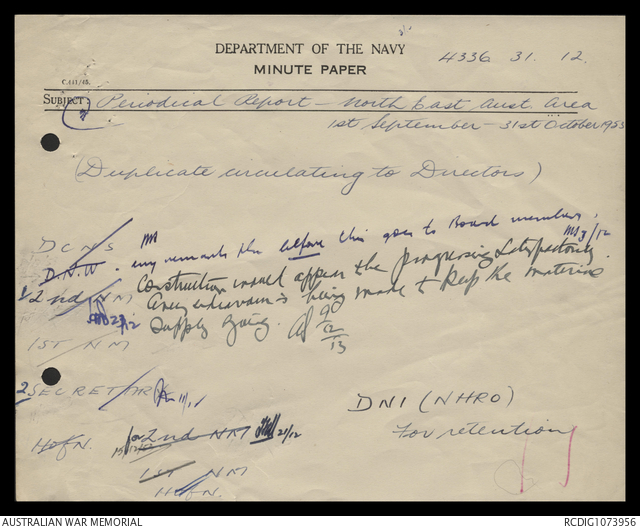 DEPARTMENT OF THE NAVY
MINUTE PAPER
4336 31. 12.
C.111/45.
Subject: Periodical Report - North East Aust Area
1st September - 31st October 1953
(Duplicate circulating to Directors)
DCNS
D.N.W. any remarks pse before this goes to Board members.
2nd NM Construction would appear to be progressing satisfactorily.
Every endeavour is being made to keep the materials
supply going.
23/12
1ST NM
2 SECRETARY 11/1
DNI (NHRO)
For retention
H of N. for 2nd NM 21/12
1ST NM
H of N.
AUSTRALIAN WAR MEMORIAL
RCDIG1073956